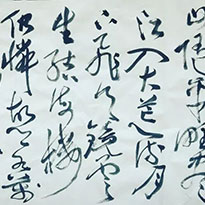 山随平野尽
江入大荒流月
下飞天镜云
生结海楼
仍怜故乡水万